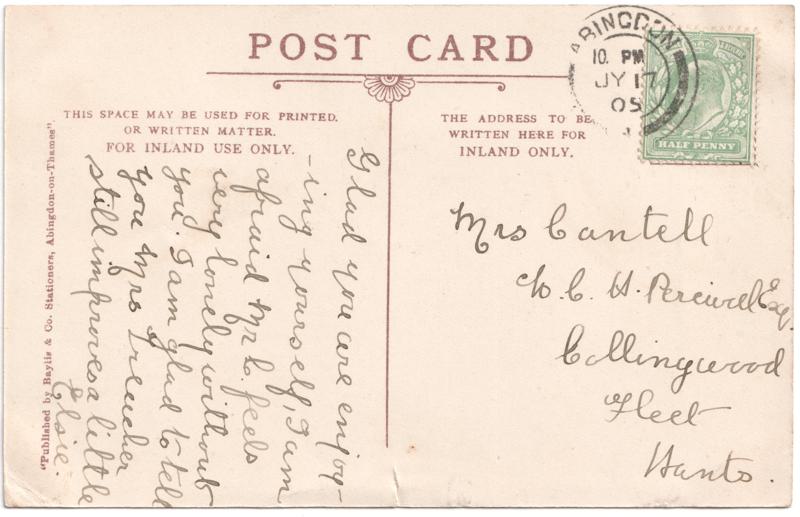 POST CARD
THIS SPACE MAY BE USED FOR PRINTED.
OR WRITTEN MATTER.
FOR INLAND USE ONLY.
THE ADDRESS TO BE
WRITTEN HERE FOR
INLAND ONLY.
ABINGDON
10. PM
JY 17
05
HALF PENNY
"Published by Baylis & Co. Stationers, Abingdon-on-Thames".
Glad you are enjoy-
-ing yourself, I am
afraid Mr C. feels
very lonely without
you. I am glad to tell
you Mrs
still improves a little
Elsie.
Mrs Cantell
C. H. Percival Esq.
Collingwood
Fleet
Hants.